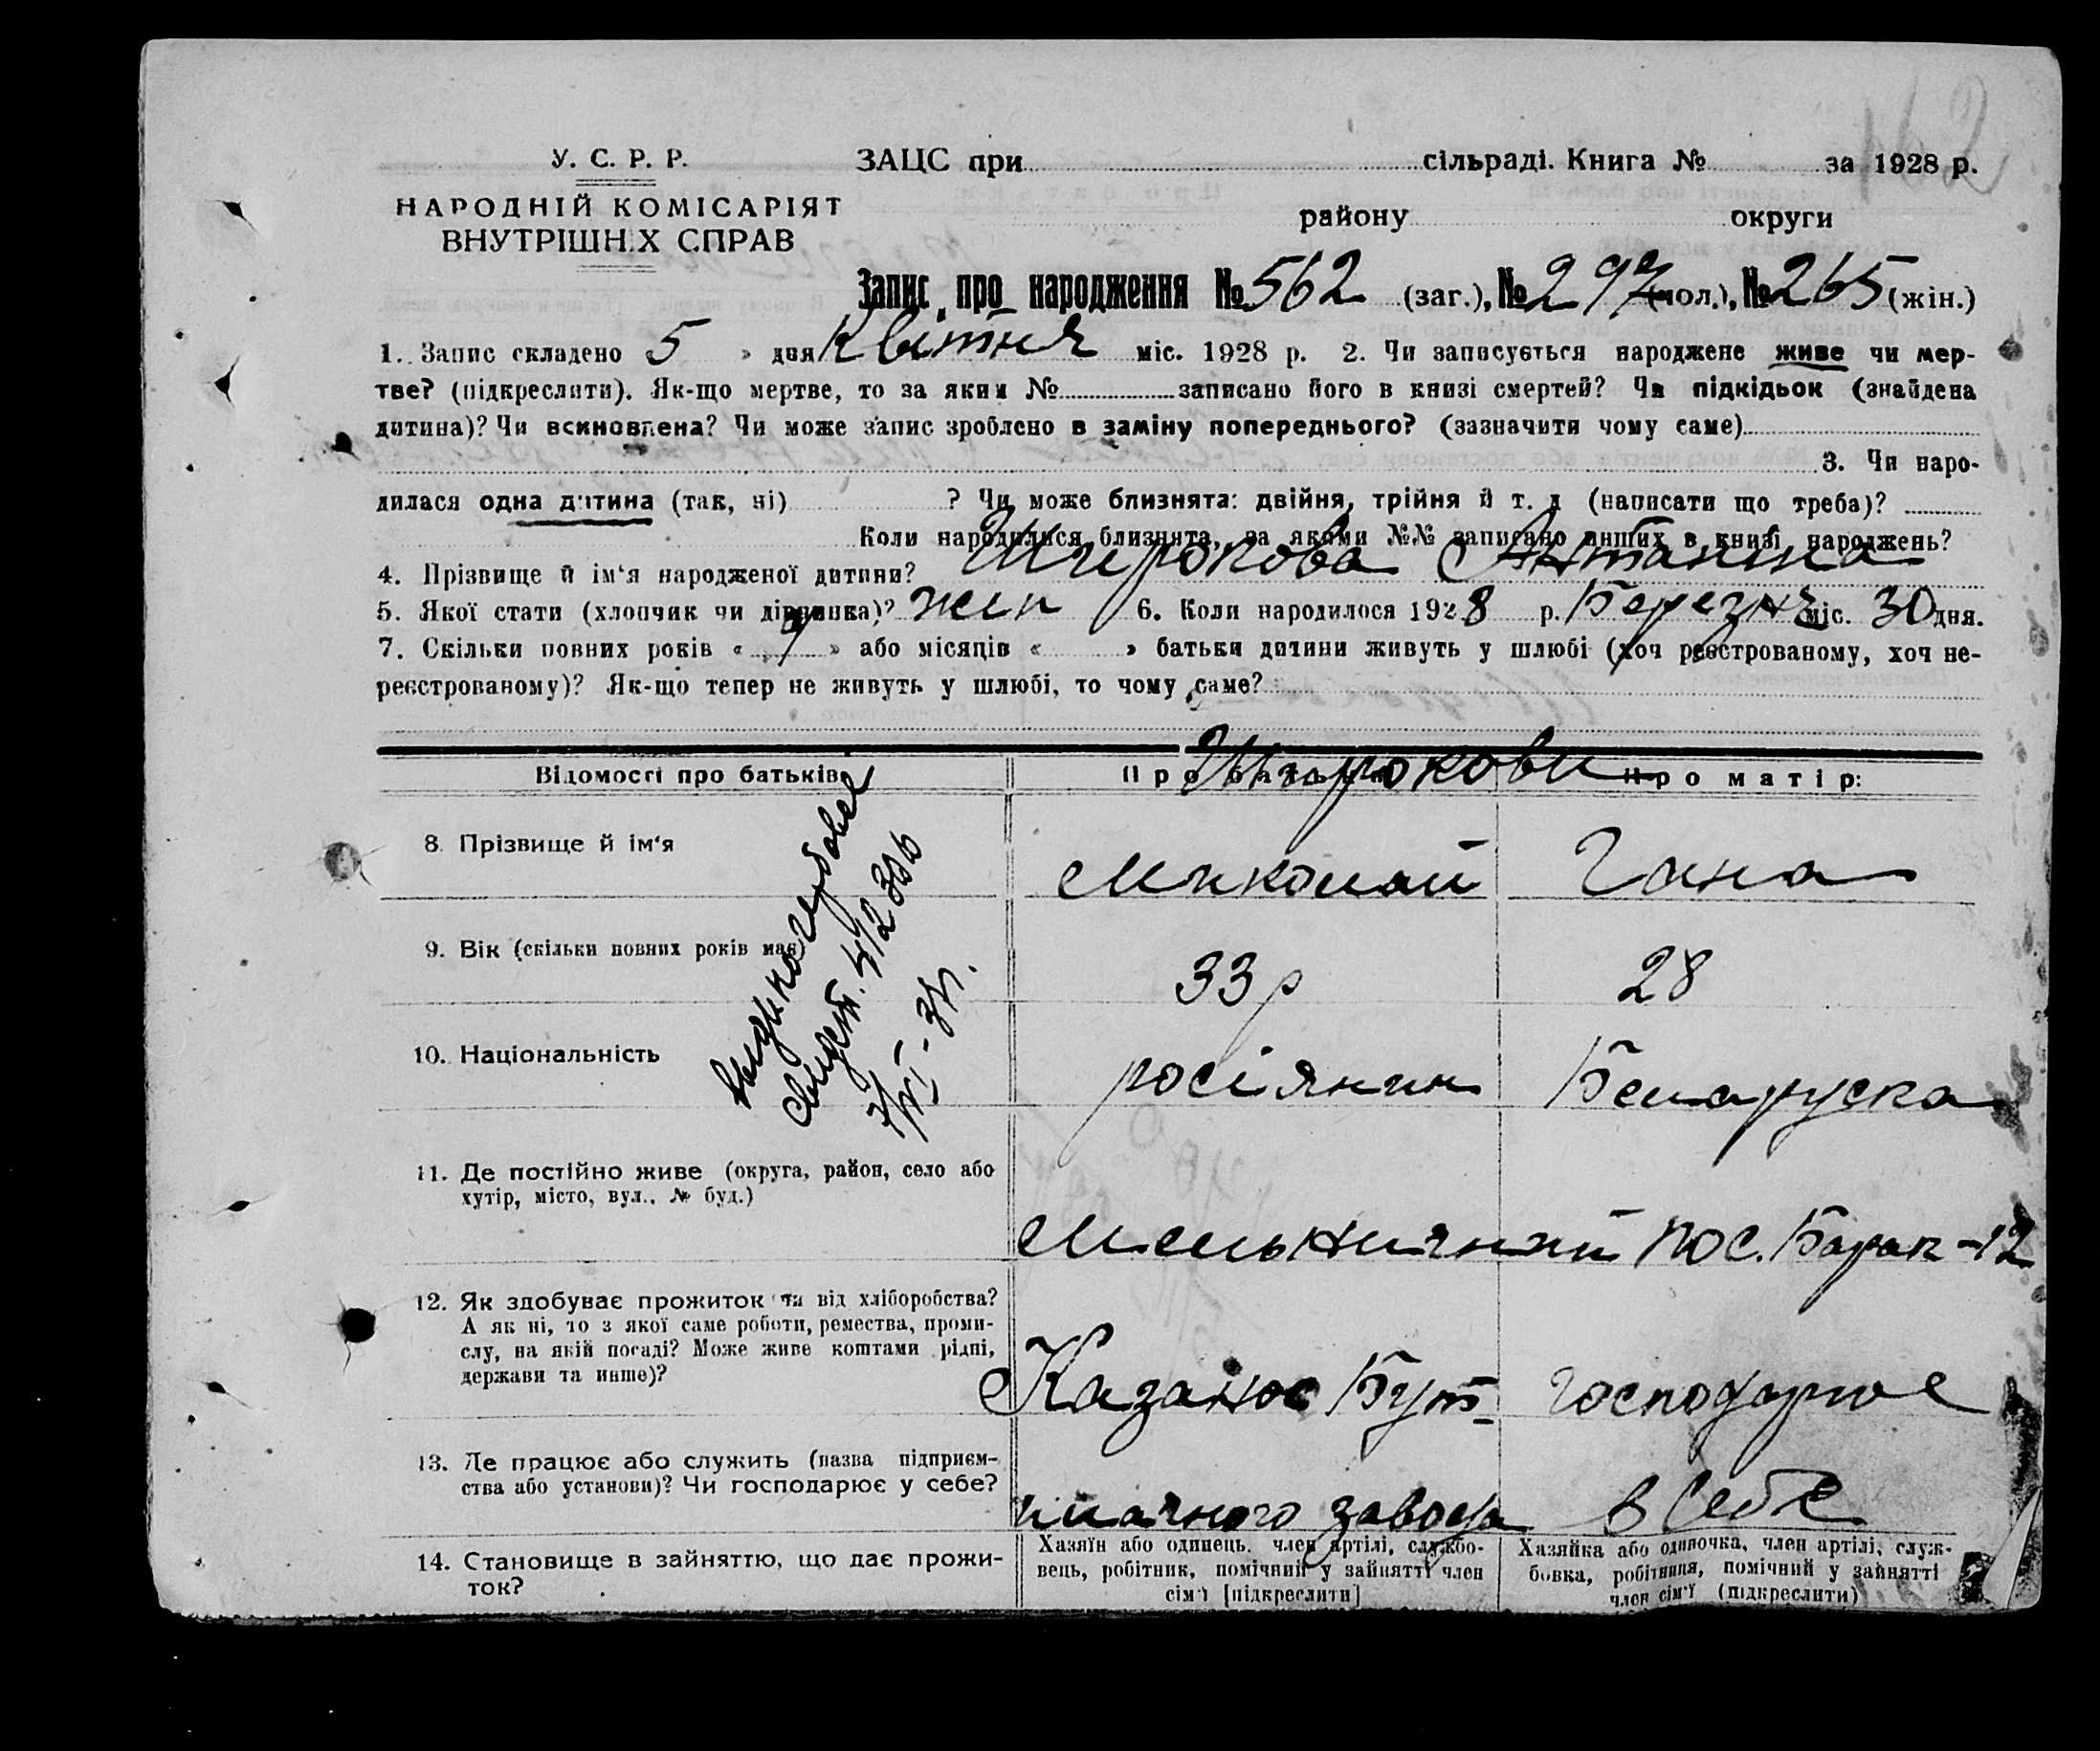 У. С. Р. Р.
НАРОДНІЙ КОМІСАРІЯТ
ВНУТРІШНІХ СПРАВ
ЗАЦС при сільраді. Книга № за 1928 р.
району округи
Запис про народження № 562 (заг.), № 297 (чол.), № 265 (жін.)
1. Запис складено 5 » дня Квітня міс. 1928 р. 2. Чи записується народжене живе чи мер-
тве? (підкреслити). Як-що мертве, то за яким № записано його в книзі смертей? Чи підкідьок (знайдена
дитина)? Чи всиновлена? Чи може запис зроблено в заміну попереднього? (зазначити чому саме)
3. Чи наро-
дилася одна дитина (так, ні) ? Чи може близнята: двійня, трійня й т. д (написати що треба)?
Коли народилися близнята, за якими №№ записано инших в книзі народжень?
4. Прізвище й ім‘я народженої дитини? Широкова Антанина
5. Якої стати (хлопчик чи дівчинка)? жин 6. Коли народилося 1928 р. Березня міс. 30 дня.
7. Скільки повних років « 7 » або місяців « » батьки дитини живуть у шлюбі (хоч реєстрованому, хоч не-
реєстрованому)? Як-що тепер не живуть у шлюбі, то чому саме?
Широкови
Відомості про батьків Про батька Про матір:
8. Прізвище й ім‘я Миколай Гана
9. Вік (скільки повних років має) 33 р 28
10. Національність росіянин Беларуска
11. Де постійно живе (округа, район, село або
хутір, місто, вул., № буд.)
Мельничний пос. Барак-12
12. Як здобуває прожиток чи від хліборобства?
А як ні, то з якої саме роботи, ремества, проми-
слу, на якій посаді? Може живе коштами рідні,
держави та инше)?
господарює
13. Де працює або служить (назва підприєм-
ства або установи)? Чи господарює у себе?
завода в себе
14. Становище в зайняттю, що дає прожи-
ток?
Хазяїн або одинець, член артілі, службо-
вець, робітник, помічний у зайнятті член
сім‘ї [підкреслити]
Хазяйка або одиночка, член артілі, служ-
бовка, робітниця, помічний у зайнятті
член сім‘ї (підкреслити)